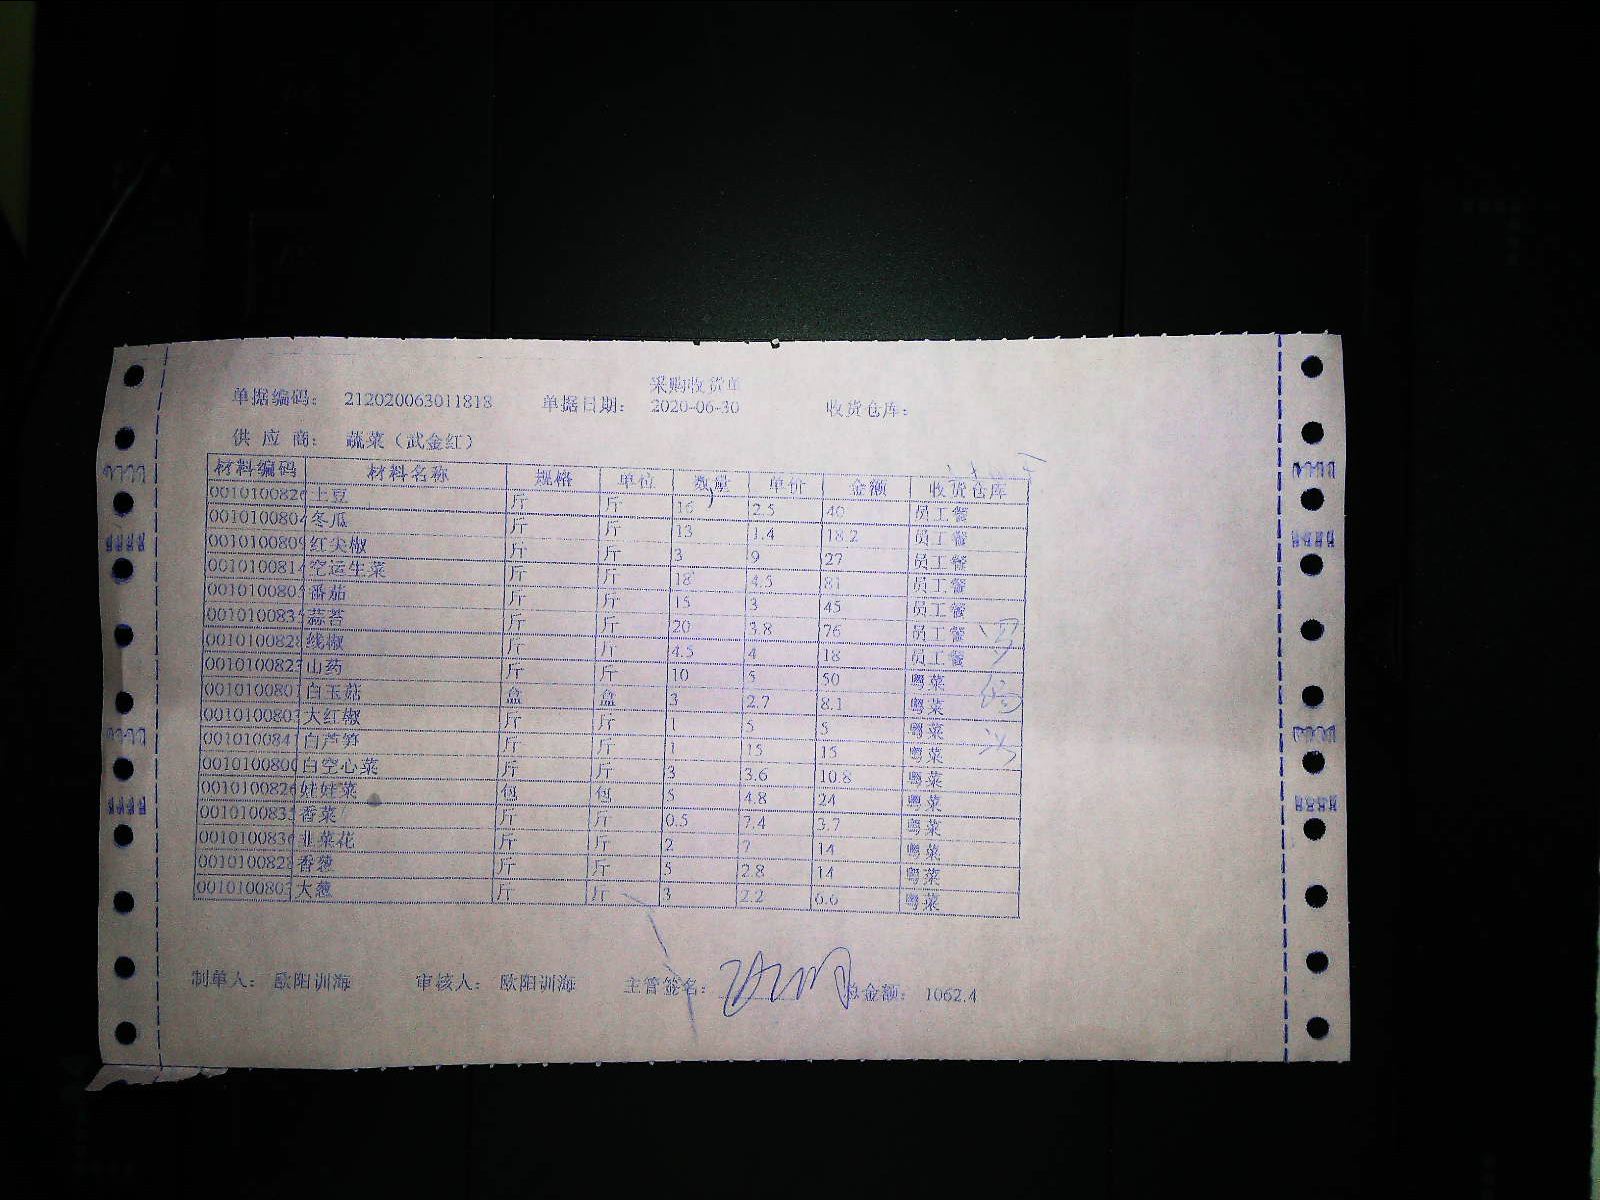 采购收货单
单据编码： 212020063011818 单据日期： 2020-06-30 收货仓库：
供 应 商： 蔬菜（武金红）
材料编码 材料名称 规格 单位 数量 单价 金额 收货仓库
0010100826 土豆 斤 斤 16 2.5 40 员工餐
0010100804 冬瓜 斤 斤 13 1.4 18.2 员工餐
0010100809 红尖椒 斤 斤 3 9 27 员工餐
0010100814 空运生菜 斤 斤 18 4.5 81 员工餐
0010100805 番茄 斤 斤 15 3 45 员工餐
0010100835 蒜苔 斤 斤 20 3.8 76 员工餐
0010100828 线椒 斤 斤 4.5 4 18 员工餐
0010100823 山药 斤 斤 10 5 50 粤菜
0010100801 白玉菇 盒 盒 3 2.7 8.1 粤菜
0010100803 大红椒 斤 斤 1 5 5 粤菜
0010100841 白芦笋 斤 斤 1 15 15 粤菜
0010100800 白空心菜 斤 斤 3 3.6 10.8 粤菜
0010100826 娃娃菜 包 包 5 4.8 24 粤菜
0010100833 香菜 斤 斤 0.5 7.4 3.7 粤菜
0010100836 韭菜花 斤 斤 2 7 14 粤菜
0010100828 香葱 斤 斤 5 2.8 14 粤菜
0010100803 大葱 斤 斤 3 2.2 6.6 粤菜
制单人： 欧阳训海 审核人： 欧阳训海 主管签名： 总金额： 1062.4